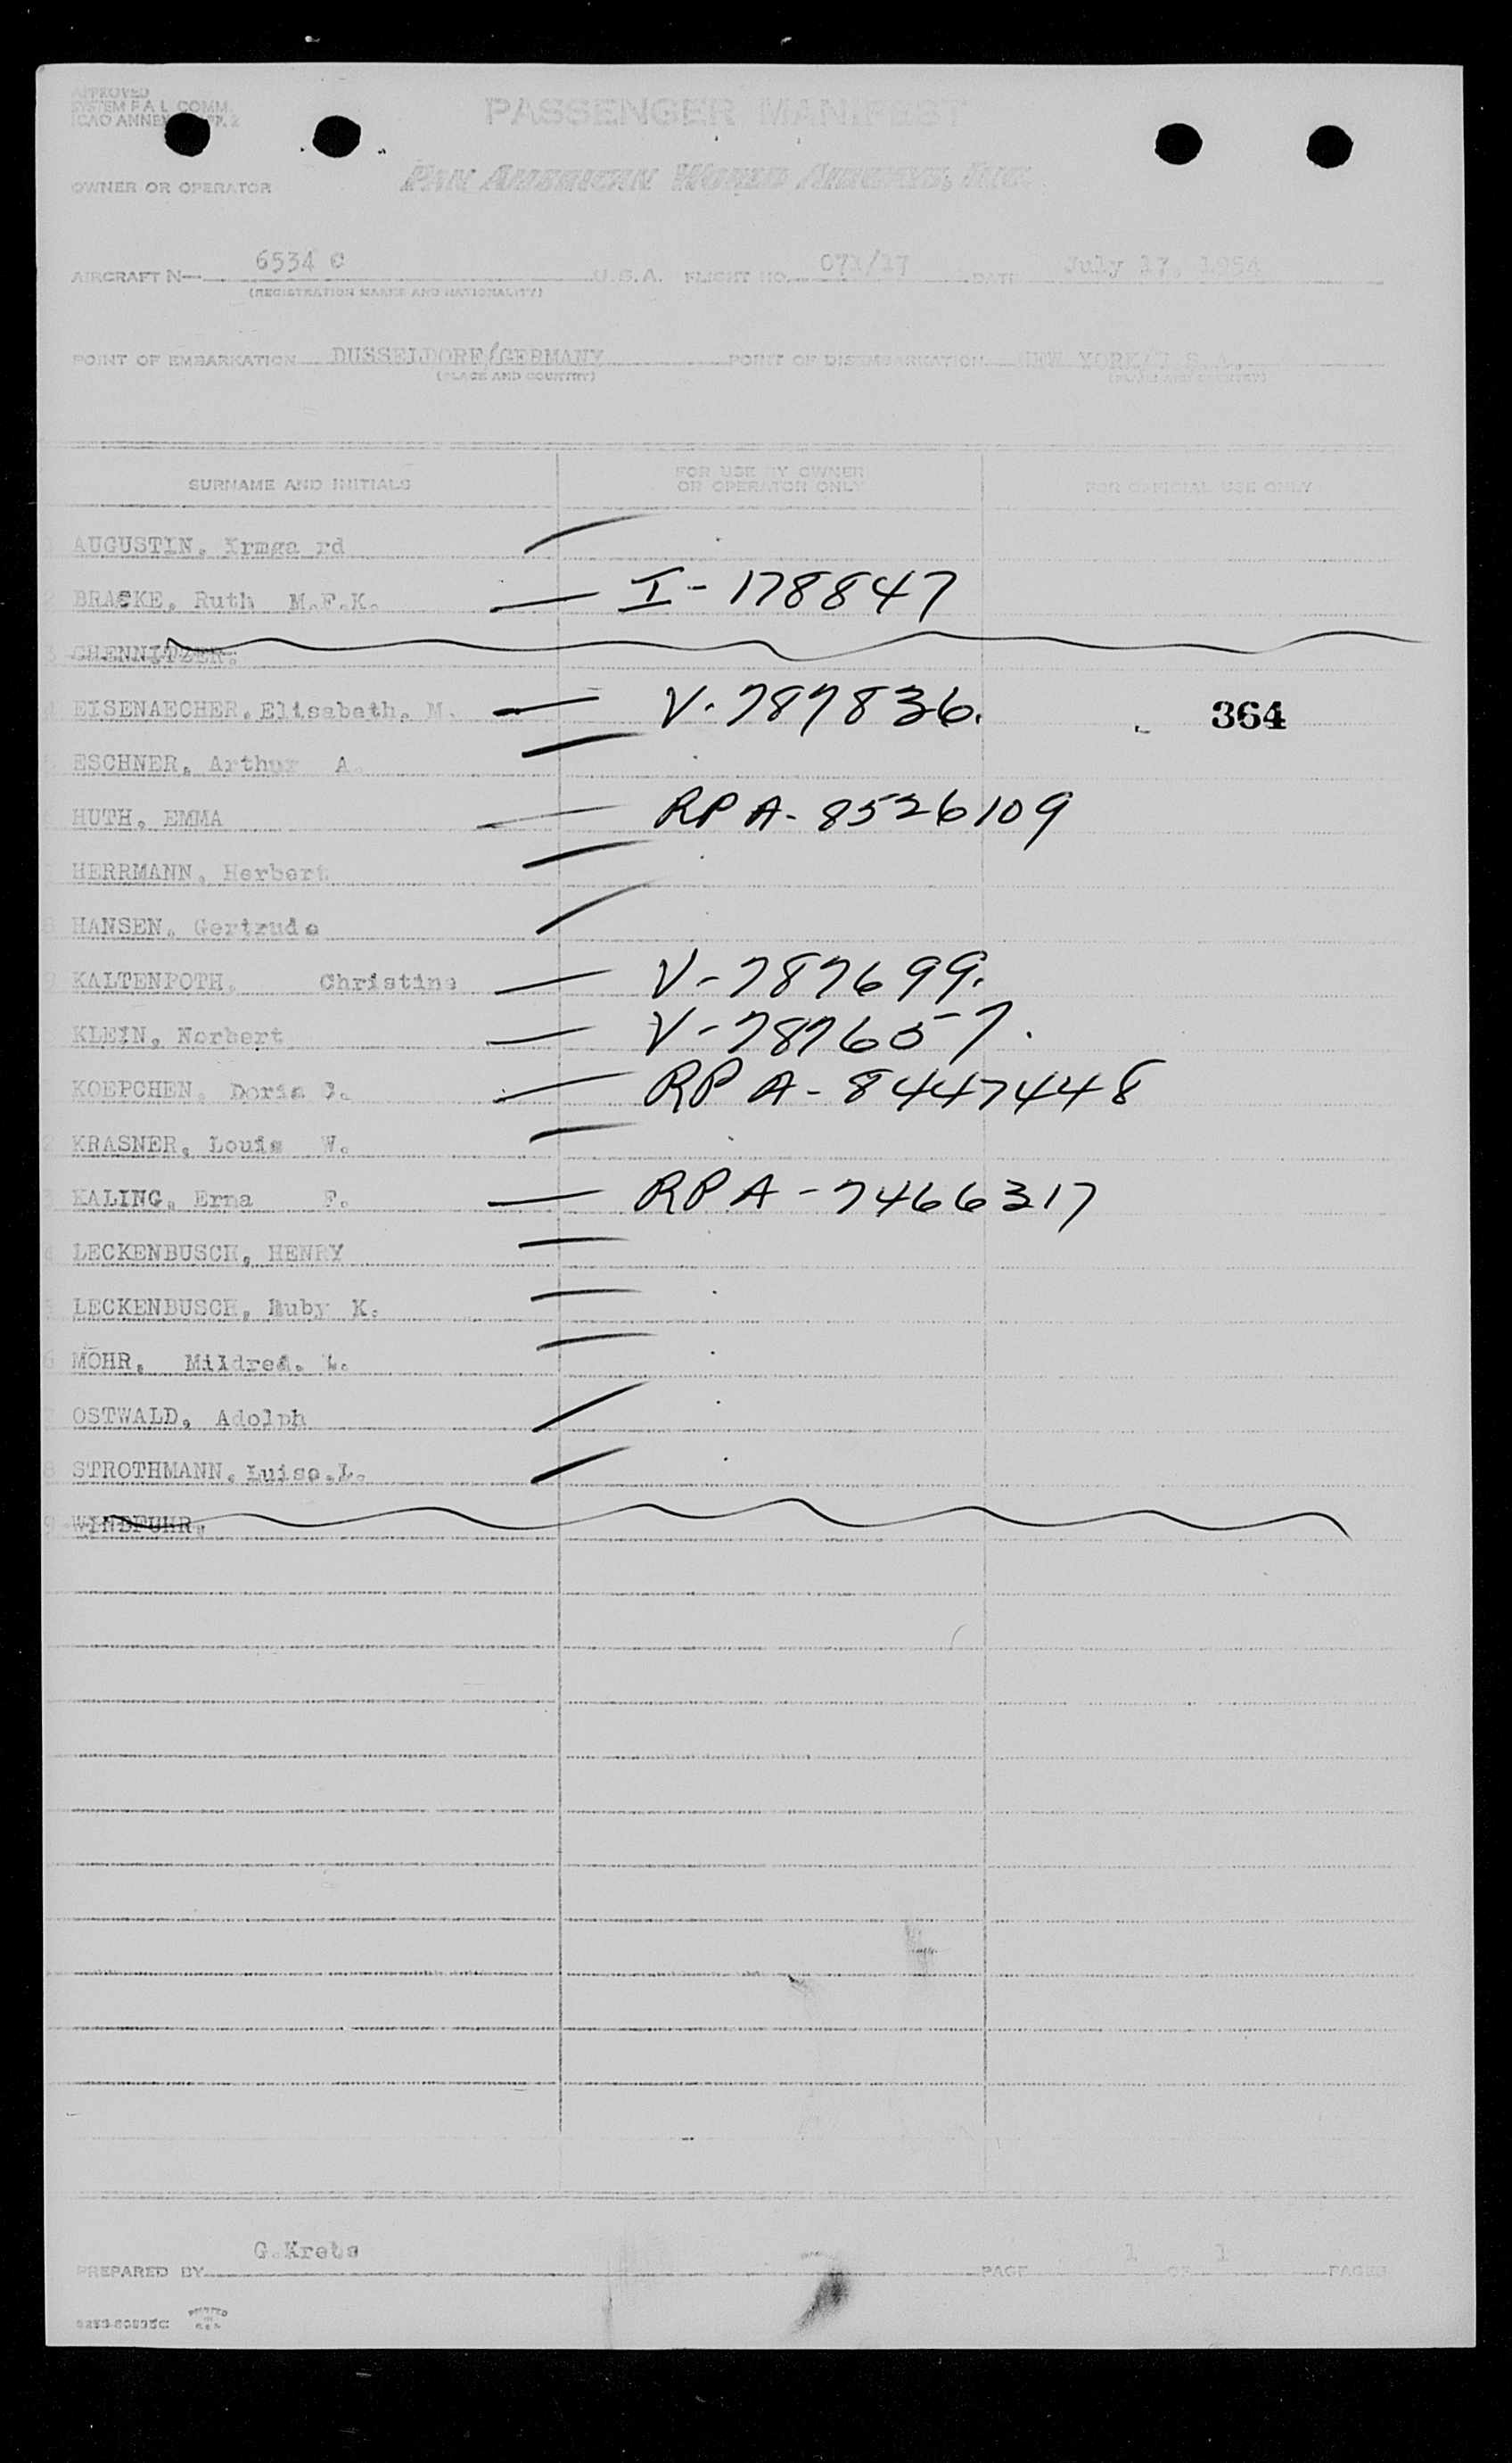 APPROVED
SYSTEM F A L COMM.
ICAO ANNEX 9 APP. 2
PASSENGER MANIFEST
OWNER OR OPERATOR PAN AMERICAN WORLD AIRWAYS, INC.
AIRCRAFT N— 6534 C U.S.A. FLIGHT NO. 071/17 DATE July 17, 1954
(REGISTRATION MARKS AND NATIONALITY)
POINT OF EMBARKATION DUSSELDORF/GERMANY POINT OF DISEMBARKATION NEW YORK/U.S.A.
(PLACE AND COUNTRY) (PLACE AND COUNTRY)
SURNAME AND INITIALS FOR USE BY OWNER OR OPERATOR ONLY FOR OFFICIAL USE ONLY
AUGUSTIN, Irmga rd
2 BRASKE, Ruth M.F.K. — I-178847
3 CHENNITZER.
4 EISENAECHER, Elisabeth, M. — V-787836. 364
5 ESCHNER, Arthur A.
HUTH, EMMA — RP A-8526109
HERRMANN, Herbert
8 HANSEN, Gertrude
9 KALTENPOTH, Christine — V-787699.
KLEIN, Norbert — V-787657.
KOEPCHEN, Doris — RP A-8447448
2 KRASNER, Louis W.
3 KALING, Erna F. — RP A-7466317
4 LECKENBUSCH, HENRY
5 LECKENBUSCH, Ruby K.
6 MOHR, Mildred. L.
OSTWALD, Adolph
8 STROTHMANN, Luise.L.
9 WINDFUHR,
PREPARED BY G.Krets PAGE 1 OF 1 PAGES
PRINTED IN U.S.A.